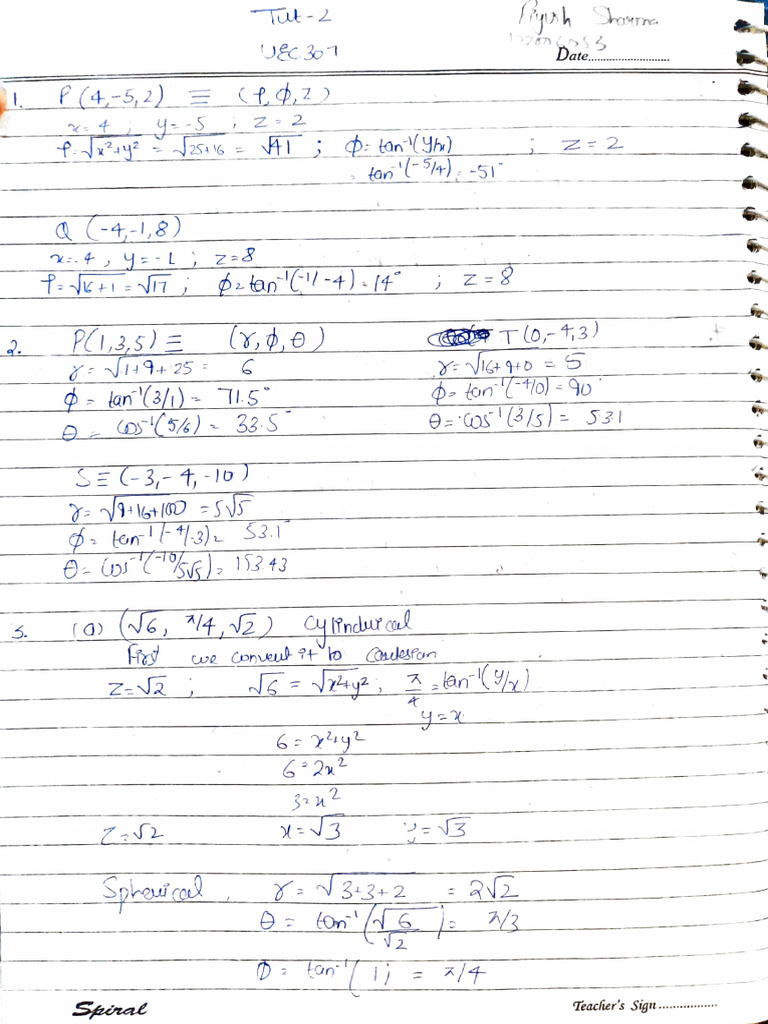 Tut-2
Piyush Sharma
UEC301
Date
1. P(4,-5,2) ≡ (ρ,ϕ,z)
x=4 ; y=-5 ; z=2
ρ=√x²+y² = √25+16 = √41 ; ϕ=tan⁻¹(y/x) ; z=2
= tan⁻¹(-5/4) = -51°
Q (-4,-1,8)
x=-4 , y=-1 ; z=8
ρ=√16+1 = √17 ; ϕ=tan⁻¹(-1/-4)=14° ; z=8
2. P(1,3,5) ≡ (r,ϕ,θ) T(0,-4,3)
r=√1+9+25 = 6 r=√16+9+0 = 5
ϕ = tan⁻¹(3/1) = 71.5° ϕ= tan⁻¹(-4/0)=90°
θ = cos⁻¹(5/6) = 33.5° θ= cos⁻¹(3/5) = 53.1
S ≡ (-3,-4,-10)
r=√9+16+100 = 5√5
ϕ= tan⁻¹(-4/-3)= 53.1°
θ= cos⁻¹(-10/5√5)= 153.43
3. (a) (√6, π/4, √2) Cylindrical
First we convert it to cartesian
z=√2 ; √6 = √x²+y² ; π/4=tan⁻¹(y/x)
y=x
6=x²+y²
6=2x²
3=x²
z=√2 x=√3 y=√3
Spherical , r = √3+3+2 = 2√2
θ = tan⁻¹(√6/√2)= π/3
ϕ = tan⁻¹(1) = π/4
Spiral
Teacher's Sign